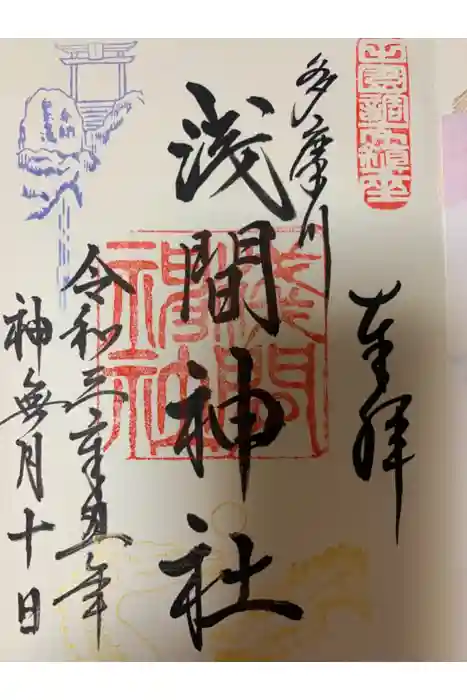 奉拝
多摩川
浅間神社
令和三辛丑年
神無月十日
淺間
神社